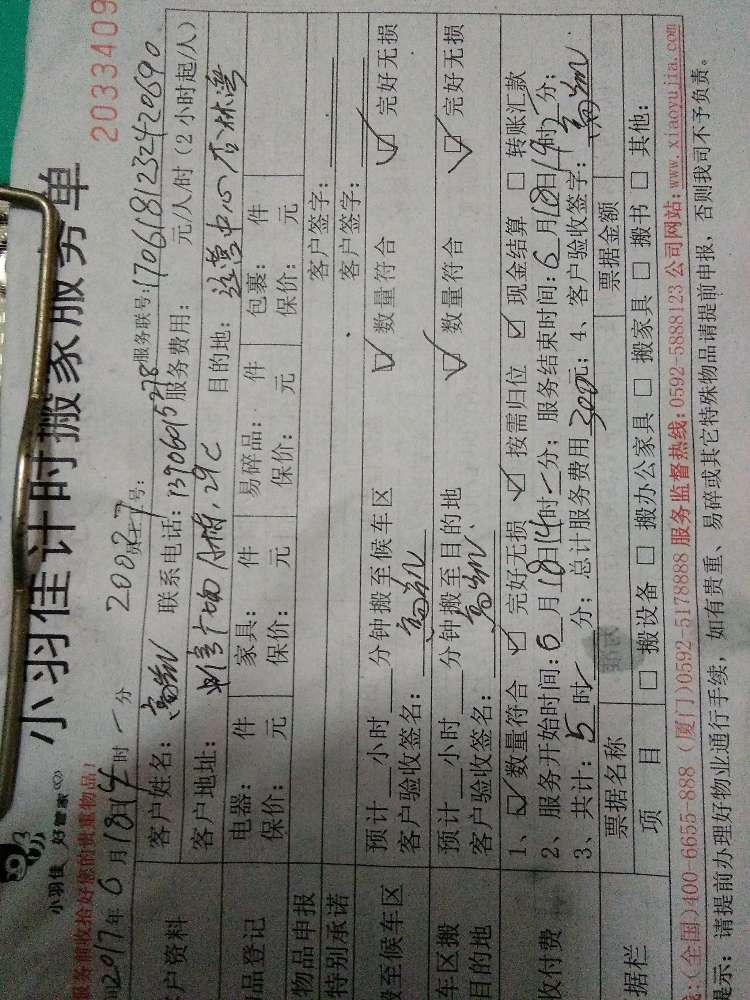 小羽佳 好管家
小羽佳计时搬家服务单
2033409
服务前收拾好您的贵重物品!
2017年6月18日14时 分
20027
服务联号:1706181232420690
户资料
客户姓名:
联系电话:13906015278
服务费用: 元/人/时(2小时起/人)
客户地址: 29C
目的地:运营中心/杏林湾
品登记
电器: 件 家具: 件 易碎品: 件 包裹: 件
保价: 元 保价: 元 保价: 元 保价: 元
物品申报
客户签字:
特别承诺
客户签字:
搬至候车区
预计 小时 分钟搬至候车区 数量符合 完好无损
客户验收签名:
车区搬
目的地
预计 小时 分钟搬至目的地 数量符合 完好无损
客户验收签名:
收付费
1、数量符合 完好无损 按需归位 现金结算 转账汇款
2、服务开始时间:6月18日14时 分; 服务结束时间:6月18日19时 分;
3、共计:5时 分; 总计服务费用300元; 4、客户验收签字:
据栏
票据名称 票据金额
项目 搬设备 搬办公家具 搬家具 搬书 其他:
:(全国)400-6655-888 (厦门)0592-5178888 服务监督热线:0592-5888123 公司网站:www.xiaoyujia.com
提示: 请提前办理好物业通行手续, 如有贵重、易碎或其它特殊物品请提前申报, 否则我司不予负责。